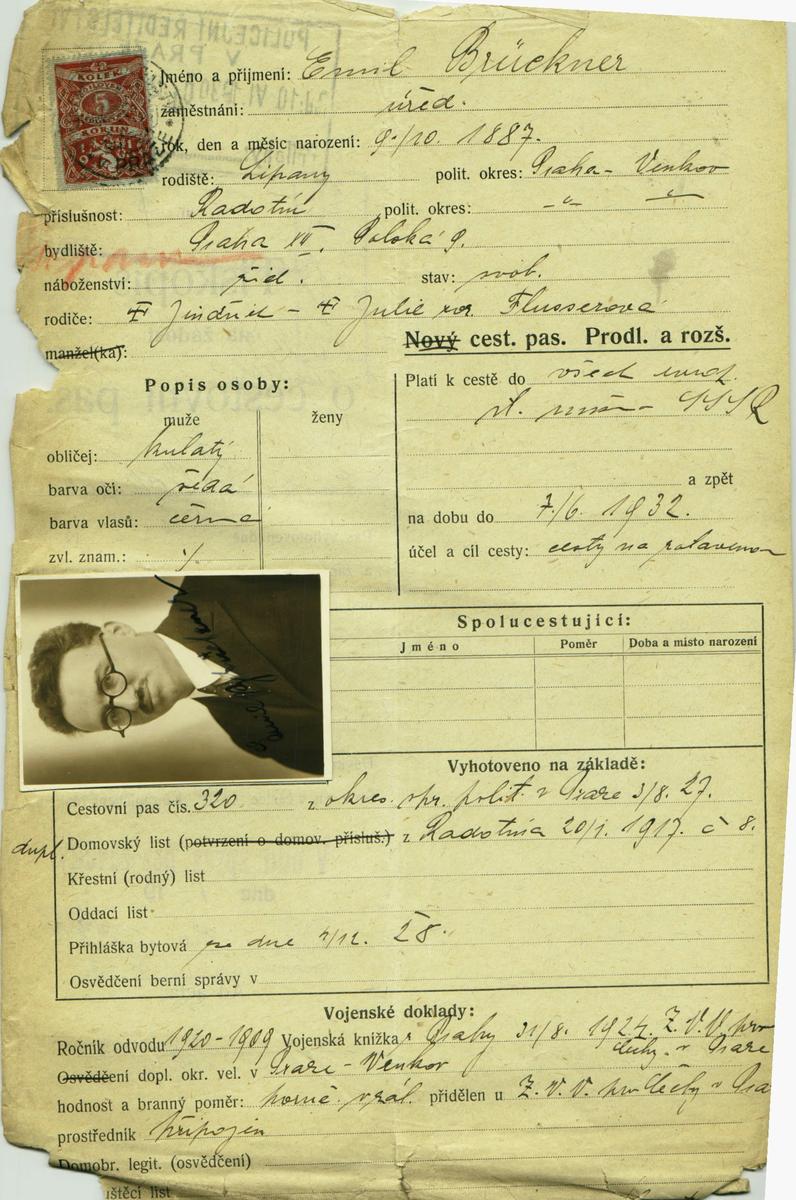 POLICEJNÍ ŘEDITELSTVÍ
V PRAZE
KOLEK
5
KORUN
Jméno a příjmení: Emil Brückner
zaměstnání: úřed.
rok, den a měsíc narození: 9./10. 1887.
rodiště: Lipany polit. okres: Praha - Venkov
příslušnost: Radotín polit. okres: -„- -„-
bydliště: Praha XII. Polská 9.
náboženství: žid. stav: svob.
rodiče: Jindřich - Julie roz. Flusserová
manžel(ka):
Nový cest. pas. Prodl. a rozš.
Popis osoby:
muže ženy
obličej: kulatý
barva očí: šedá
barva vlasů: černá
zvl. znam.: ·/.
Platí k cestě do všech
SSSR
a zpět
na dobu do 7./6. 1932.
účel a cíl cesty: cesty na zotavenou
Spolucestující:
Jméno Poměr Doba a místo narození
Vyhotoveno na základě:
Cestovní pas čís. 320 z okres. spr. polit. v Praze 3/8. 27.
dupl. Domovský list (potvrzení o domov. přísluš.) z Radotína 20/1. 1917. č 8.
Křestní (rodný) list
Oddací list
Přihláška bytová ze dne 4/12. 28.
Osvědčení berní správy v
Vojenské doklady:
Ročník odvodu 1920-1909 Vojenská knížka Prahy 31/8. 1924. Z.V.V. pro
Čechy v Praze
Osvědčení dopl. okr. vel. v Praze - Venkov
hodnost a branný poměr: přidělen u Z.V.V. pro Čechy v
prostředník připojen
Domobr. legit. (osvědčení)
uštěcí list